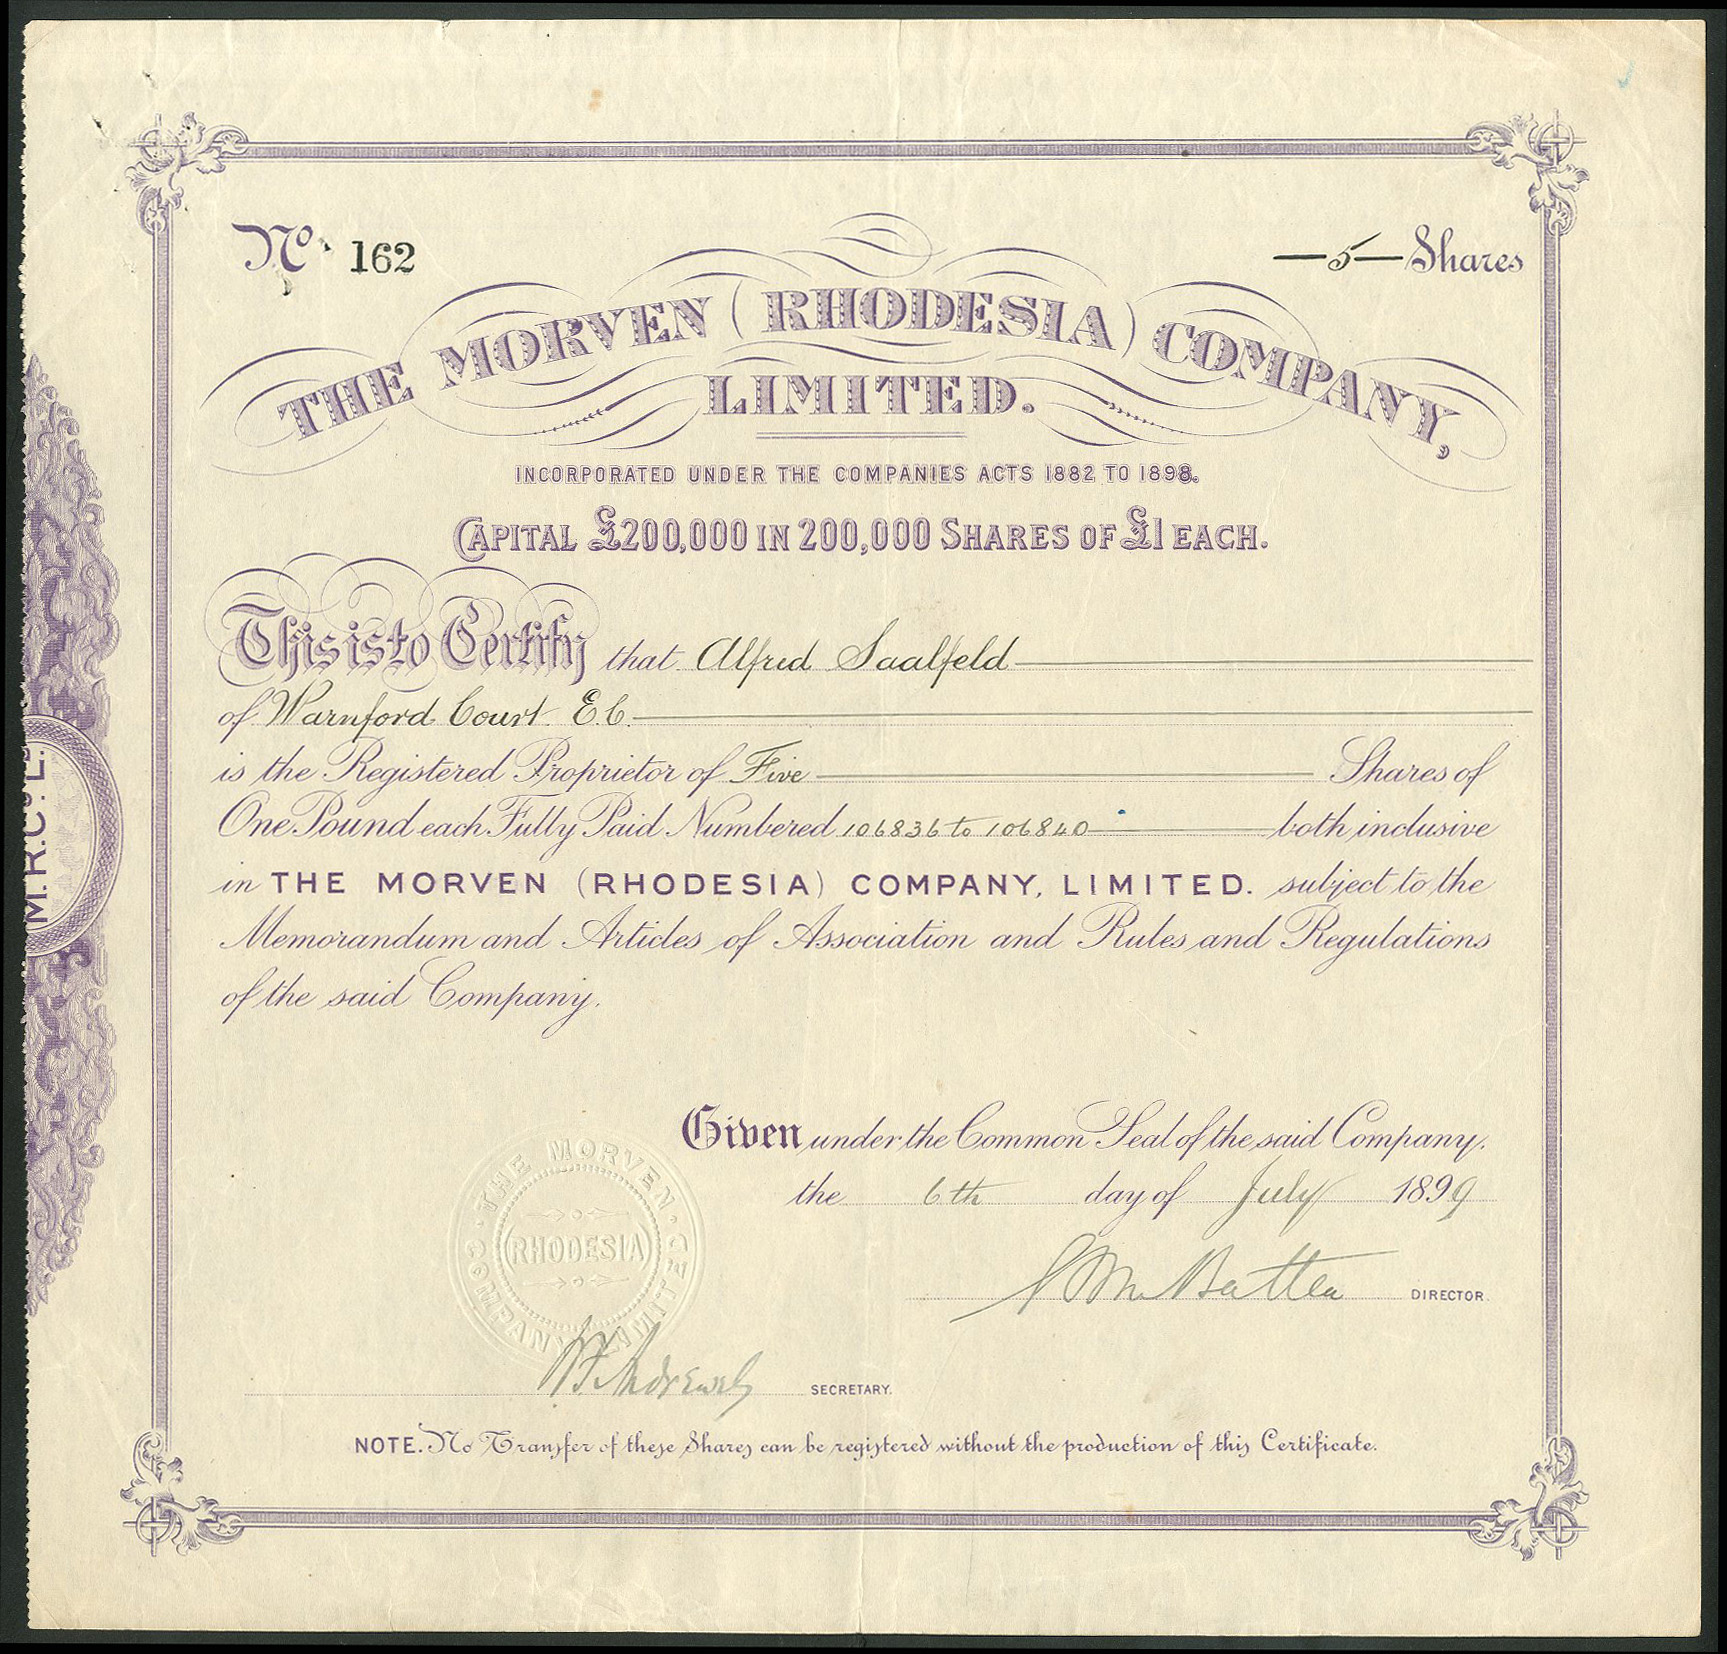 No. 162
—5— Shares
THE MORVEN (RHODESIA) COMPANY,
LIMITED.
INCORPORATED UNDER THE COMPANIES ACTS 1882 TO 1898.
CAPITAL £200,000 IN 200,000 SHARES OF £1 EACH.
This is to Certify that Alfred Saalfeld
of Warnford Court E.C.
is the Registered Proprietor of Five Shares of
One Pound each Fully Paid Numbered 106836 to 106840 both inclusive
in THE MORVEN (RHODESIA) COMPANY, LIMITED. subject to the
Memorandum and Articles of Association and Rules and Regulations
of the said Company.
M.R.Co. L.
Given under the Common Seal of the said Company,
the 6th day of July 1899
THE MORVEN
(RHODESIA)
COMPANY LIMITED
Batten DIRECTOR.
Andrews SECRETARY.
NOTE. No Transfer of these Shares can be registered without the production of this Certificate.